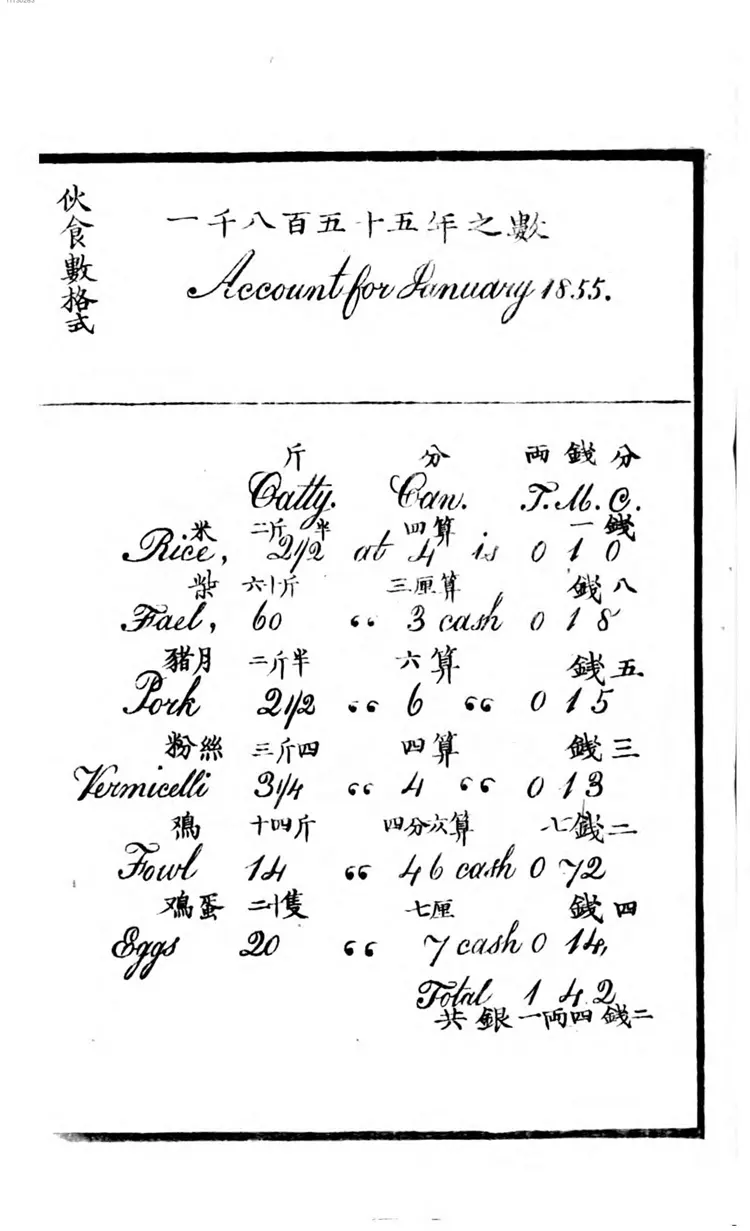 伙食數格式
一千八百五十五年之數
Account for January 1855.
斤 分 両 錢 分
Catty. Can. T. M. C.
米 二斤半 四算 一錢
Rice, 2 1/2 at 4 is 0 1 0
柴 六十斤 三厘算 錢八
Fael, 60 “ 3 cash 0 1 8
豬月 二斤半 六算 錢五
Pork 2 1/2 “ 6 “ 0 1 5
粉絲 三斤四 四算 錢三
Vermicelli 3 1/4 “ 4 “ 0 1 3
鳮 十四斤 四分六算 七錢二
Fowl 14 “ 46 cash 0 72
鳮蛋 二十隻 七厘 錢四
Eggs 20 “ 7 cash 0 14,
Total 1 4.2
共銀一両四錢二